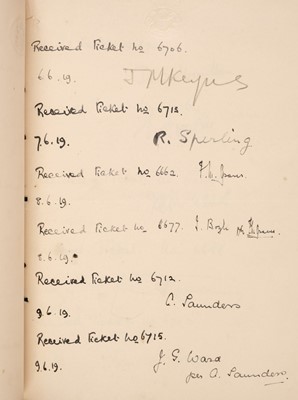 Received Ticket No 6706.
6.6.19. J M Keynes
Received Ticket No 6711.
7.6.19. R. Sperling
Received Ticket No 6662.
8.6.19.
Received Ticket No 6677.
8.6.19.
Received Ticket No 6712.
9.6.19. A. Saunders
Received Ticket No 6715.
9.6.19. J. G. Ward
per A. Saunders.